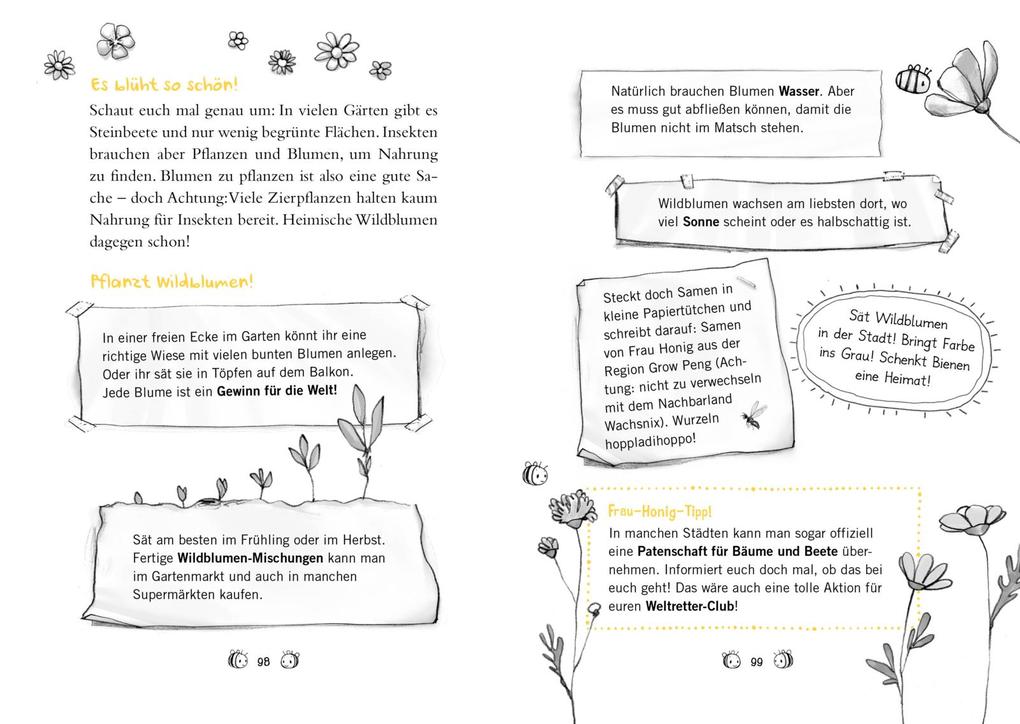 Es blüht so schön!
Schaut euch mal genau um: In vielen Gärten gibt es
Steinbeete und nur wenig begrünte Flächen. Insekten
brauchen aber Pflanzen und Blumen, um Nahrung
zu finden. Blumen zu pflanzen ist also eine gute Sa-
che – doch Achtung:Viele Zierpflanzen halten kaum
Nahrung für Insekten bereit. Heimische Wildblumen
dagegen schon!
Pflanzt Wildblumen!
In einer freien Ecke im Garten könnt ihr eine
richtige Wiese mit vielen bunten Blumen anlegen.
Oder ihr sät sie in Töpfen auf dem Balkon.
Jede Blume ist ein Gewinn für die Welt!
Sät am besten im Frühling oder im Herbst.
Fertige Wildblumen-Mischungen kann man
im Gartenmarkt und auch in manchen
Supermärkten kaufen.
98
Natürlich brauchen Blumen Wasser. Aber
es muss gut abfließen können, damit die
Blumen nicht im Matsch stehen.
Wildblumen wachsen am liebsten dort, wo
viel Sonne scheint oder es halbschattig ist.
Steckt doch Samen in
kleine Papiertütchen und
schreibt darauf: Samen
von Frau Honig aus der
Region Grow Peng (Ach-
tung: nicht zu verwechseln
mit dem Nachbarland
Wachsnix). Wurzeln
hoppladihoppo!
Sät Wildblumen
in der Stadt! Bringt Farbe
ins Grau! Schenkt Bienen
eine Heimat!
Frau-Honig-Tipp!
In manchen Städten kann man sogar offiziell
eine Patenschaft für Bäume und Beete über-
nehmen. Informiert euch doch mal, ob das bei
euch geht! Das wäre auch eine tolle Aktion für
euren Weltretter-Club!
99